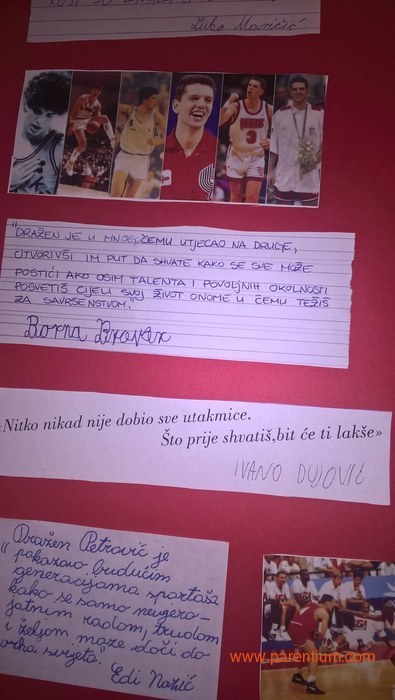 Lubo Maričić
NETS
3
"DRAŽEN JE U MNOGOČEMU UTJECAO NA DRUGE,
OTVORIVŠI IM PUT DA SHVATE KAKO SE SVE MOŽE
POSTIĆI AKO OSIM TALENTA I POVOLJNIH OKOLNOSTI
POSVETIŠ CIJELI SVOJ ŽIVOT ONOME U ČEMU TEŽIŠ
ZA SAVRŠENSTVOM."
Borna
Nitko nikad nije dobio sve utakmice.
Što prije shvatiš,bit će ti lakše»
IVANO DUJOVIĆ
Dražen Petrović je
"pokazao budućim
generacijama sportaša
kako se samo nevjero-
jatnim radom, trudom
i željom može doći do
vrha svijeta".
Edi Nožić
www.parentium.com